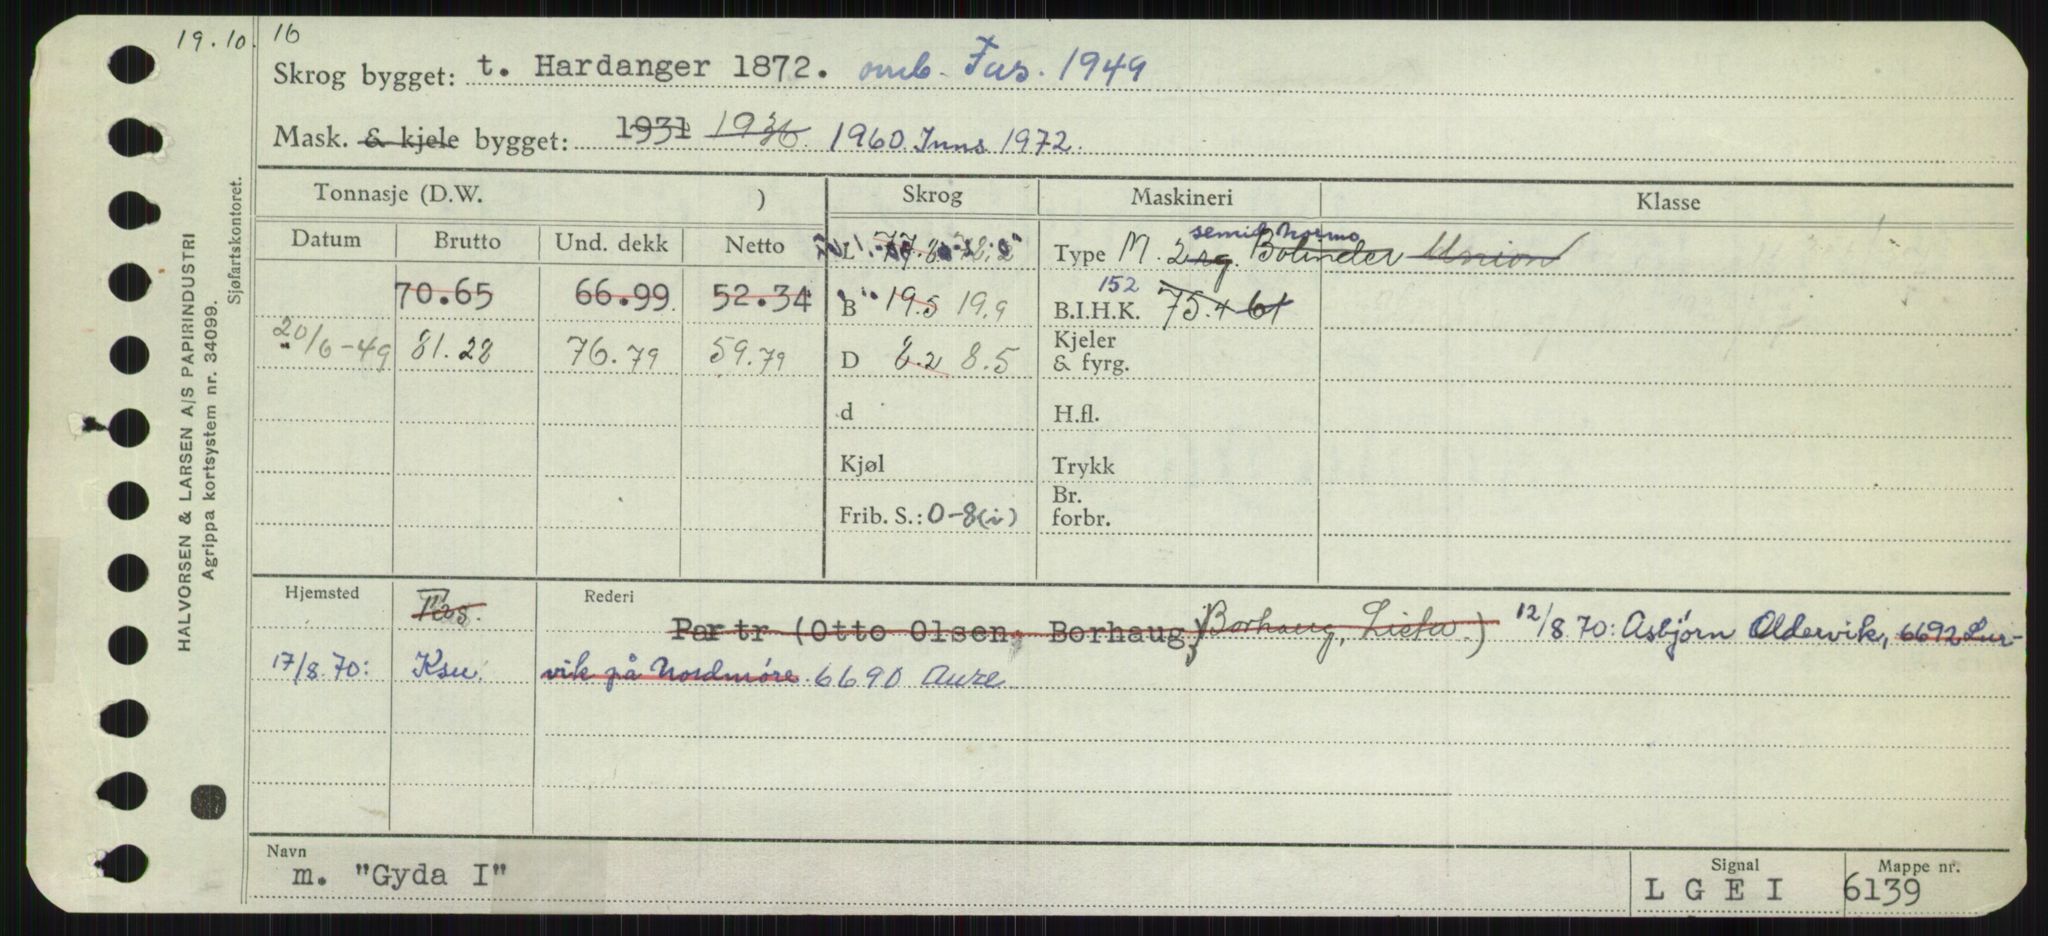 19.10.16
Skrog bygget: t. Hardanger 1872. omb. Fus. 1949
Mask. & kjele bygget: 1931 1936 1960 Inns 1972.
Tonnasje (D.W. ) Skrog Maskineri Klasse
Datum Brutto Und. dekk Netto L Type M. 2 semid Normo Bolinder Union
70.65 66.99 52.34 B 19.5 19.9 B.I.H.K. 152 75.4 61
20/6-49 81.28 76.79 59.79 D 8.2 8.5 Kjeler & fyrg.
d H.fl.
Kjøl Trykk
Frib. S.: 0-8(i) Br. forbr.
Hjemsted Fas. Rederi
Partr (Otto Olsen, Borhaug) Borhaug, Lista.) 12/8.70: Asbjørn Oldervik, 6692 Lur-
17/8.70: Ksu. vik på Nordmøre. 6690 Aure
Navn
m. "Gyda I"
Signal
L G E I
Mappe nr.
6139
HALVORSEN & LARSEN A/S PAPIRINDUSTRI
Agrippa kortsystem nr. 34099.
Sjøfartskontoret.